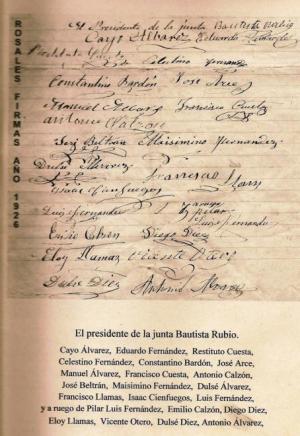 ROSALES FIRMAS AÑO 1926
El Presidente de la junta Bautista Rubio
Cayo Alvarez Eduardo Fernández
Restituto Cuesta
Celestino Fernandez
Constantino Bardón Jose Arce
Manuel Alvarez Francisco Cuesta
Antonio Calzon
José Beltran Maisimino Fernandez
Dulsé Alvarez
Francisco Llamas
Isaac Cienfuegos
Luis Fernandez y a ruego
de Pilar
Luis Fernando
Emilio Calzon Diego Diez
Eloy Llamas Vicente Otero
Dulsé Diez Antonio Alvarez
El presidente de la junta Bautista Rubio.
Cayo Álvarez, Eduardo Fernández, Restituto Cuesta,
Celestino Fernández, Constantino Bardón, José Arce,
Manuel Álvarez, Francisco Cuesta, Antonio Calzón,
José Beltrán, Maisimino Fernández, Dulsé Álvarez,
Francisco Llamas, Isaac Cienfuegos, Luis Fernández,
y a ruego de Pilar Luis Fernández, Emilio Calzón, Diego Diez,
Eloy Llamas, Vicente Otero, Dulsé Diez, Antonio Álvarez.